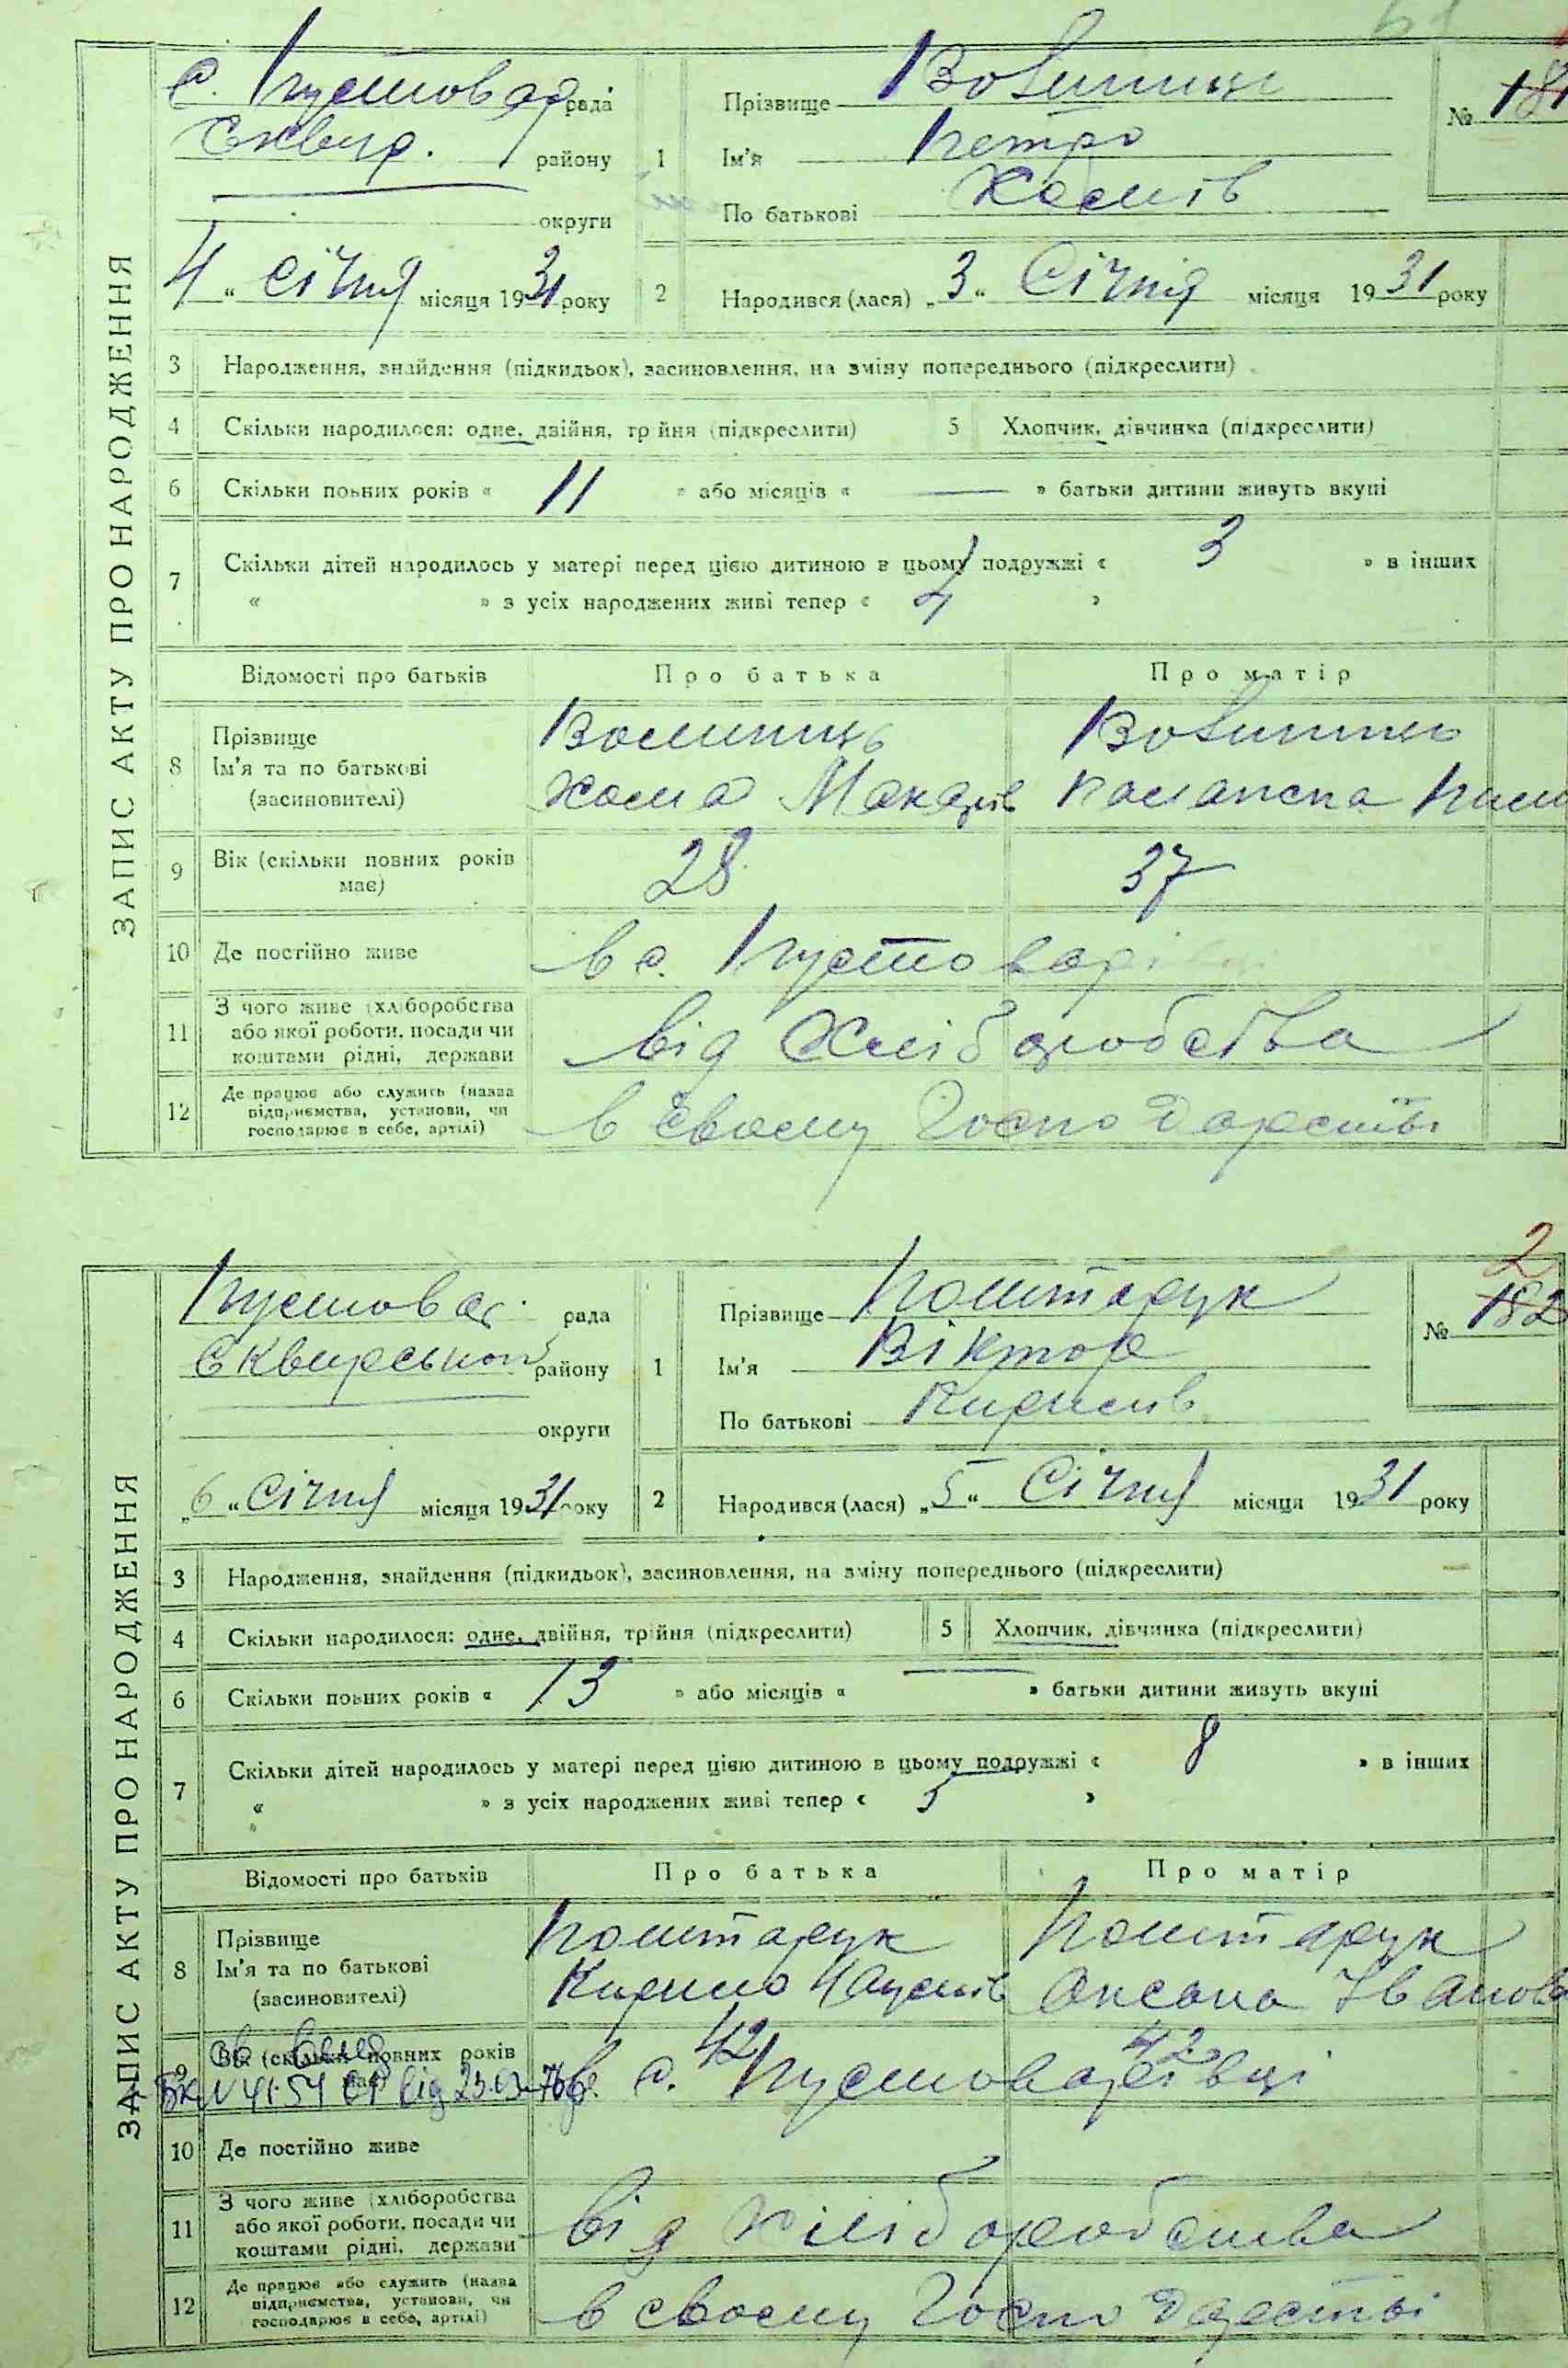 ЗАПИС АКТУ ПРО НАРОДЖЕННЯ
с. Пустовар рада
Сквир. району
округи
4 " Січня місяця 1931 року
1
Прізвище Волинець
Ім'я Петро
По батькові Хомів
№ 181
2 Народився (лася) „3“ Січня місяця 1931 року
3 Народження, знайдення (підкидьок), засиновлення, на зміну попереднього (підкреслити)
4 Скільки народилося: одне, двійня, трійня (підкреслити) 5 Хлопчик, дівчинка (підкреслити)
6 Скільки повних років « 11 » або місяців « — » батьки дитини живуть вкупі
7 Скільки дітей народилось у матері перед цією дитиною в цьому подружжі « 3 » в інших
« » з усіх народжених живі тепер « 4 »
Відомості про батьків Про батька Про матір
8 Прізвище Волинець Волинець
Ім'я та по батькові Хома Макарів
(засиновителі)
9 Вік (скільки повних років має) 28 37
10 Де постійно живе в с. Пустоварівці
11 З чого живе (хліборобства
або якої роботи, посади чи від Хліборобства
коштами рідні, держави
12 Де працює або служить (назва
підприємства, установи, чи в своєму Господарстві
господарює в себе, артілі)
ЗАПИС АКТУ ПРО НАРОДЖЕННЯ
Пустовар. рада
Сквирського району
округи
„6“ Січня місяця 1931 року
1
Прізвище Поштарук
Ім'я Віктор
По батькові Кирилів
2
№ 182
2 Народився (лася) „5“ Січня місяця 1931 року
3 Народження, знайдення (підкидьок), засиновлення, на зміну попереднього (підкреслити)
4 Скільки народилося: одне, двійня, трійня (підкреслити) 5 Хлопчик, дівчинка (підкреслити)
6 Скільки повних років « 13 » або місяців « — » батьки дитини живуть вкупі
7 Скільки дітей народилось у матері перед цією дитиною в цьому подружжі « 8 » в інших
« » з усіх народжених живі тепер « 5 »
Відомості про батьків Про батька Про матір
8 Прізвище Поштарук Поштарук
Ім'я та по батькові Кирило Оксана Іванова
(засиновителі)
9 Вік (скільки повних років 42 42
в с. Пустоварівці
10 Де постійно живе
11 З чого живе (хліборобства
або якої роботи, посади чи від Хліборобства
коштами рідні, держави
12 Де працює або служить (назва
підприємства, установи, чи в своєму Господарстві
господарює в себе, артілі)